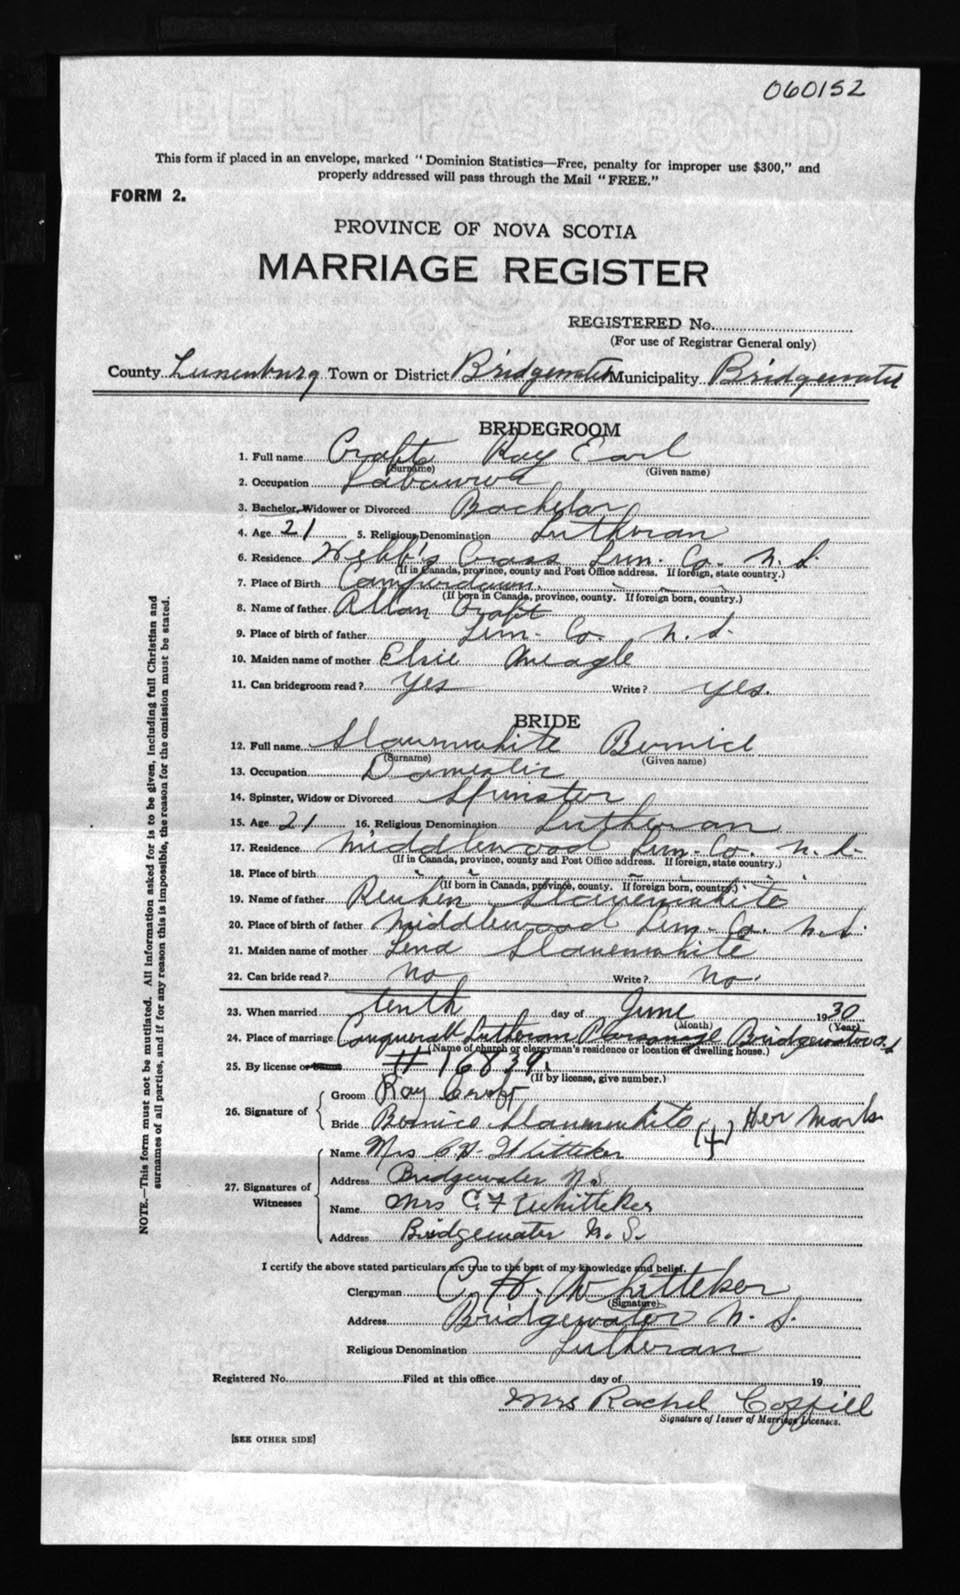 060152
This form if placed in an envelope, marked "Dominion Statistics—Free, penalty for improper use $300," and
properly addressed will pass through the Mail "FREE."
FORM 2.
PROVINCE OF NOVA SCOTIA
MARRIAGE REGISTER
REGISTERED No.
(For use of Registrar General only)
County Lunenburg Town or District Bridgewater Municipality Bridgewater
BRIDEGROOM
1. Full name Croft Ray Earl
(Surname) (Given name)
2. Occupation Labourer
3. Bachelor, Widower or Divorced Bachelor
4. Age 21 5. Religious Denomination Lutheran
6. Residence Webb's Cross Lun. Co. N. S.
(If in Canada, province, county and Post Office address. If foreign, state country.)
7. Place of Birth Camperdown.
(If born in Canada, province, county. If foreign born, country.)
8. Name of father Allan Croft
9. Place of birth of father Lun. Co. N. S.
10. Maiden name of mother Elsie Meagle
11. Can bridegroom read? Yes Write? yes.
BRIDE
12. Full name Slauenwhite Bernice
(Surname) (Given name)
13. Occupation Domestic
14. Spinster, Widow or Divorced Spinster
15. Age 21 16. Religious Denomination Lutheran
17. Residence Middlewood Lun. Co. N. S.
(If in Canada, province, county and Post Office address. If foreign, state country.)
18. Place of birth " " " " "
(If born in Canada, province, county. If foreign born, country.)
19. Name of father Reuben Slauenwhite
20. Place of birth of father Middlewood Lun. Co. N. S.
21. Maiden name of mother Lena Slauenwhite
22. Can bride read? No Write? No.
23. When married tenth day of June 1930
(Month) (Year)
24. Place of marriage Conquerall Lutheran Parsonage Bridgewater N.S
(Name of church or clergyman's residence or location of dwelling house.)
25. By license or banns # 16839.
(If by license, give number.)
26. Signature of Groom Ray Croft
Bride Bernice Slauenwhite (+) Her Mark
27. Signatures of Witnesses
Name Mrs C. H. Whitteker
Address Bridgewater N.S
Name Mrs C F Whitteker
Address Bridgewater N. S.
I certify the above stated particulars are true to the best of my knowledge and belief.
Clergyman C. H. Whitteker
(Signature)
Address Bridgewater N. S.
Religious Denomination Lutheran
Registered No. Filed at this office day of 19
Mrs Rachel Coffill
Signature of Issuer of Marriage Licenses.
[SEE OTHER SIDE]
NOTE.—This form must not be mutilated. All information asked for is to be given, including full Christian and
surnames of all parties, and if for any reason this is impossible, the reason for the omission must be stated.